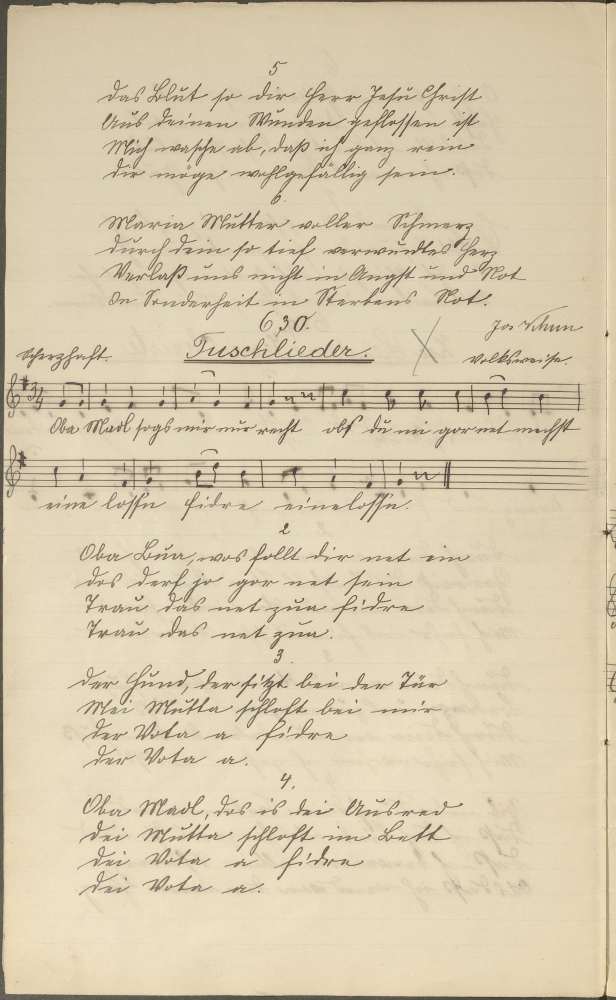 5
Das Blut so dir Herr Jesu Christ
Aus deinen Wunden geflossen ist
Mich wasche ab, daß ich ganz rein
Dir möge wohlgefällig sein.
6.
Maria Mutter voller Schmerz
Durch dein so tief verwundtes Herz
Verlaß uns nicht in Angst und Not
In Sonderheit in Sterbens Not.
630.
Jos
Scherzhaft.
Tuschlieder.
Volksweise.
Oba Madl sogs mir nur recht obs du mi gor net mechst
eine lossn fidre eine lossn.
2
Oba Bua, wos follt dir net ein
dos derf jo gor net sein
Trau das net zua fidre
Trau das net zua.
3
Der Hund, der sitzt bei der Tür
Mei Mutta schloft bei mir
Der Vota a fidre
der Vota a.
4.
Oba Madl, dos is dei Ausred
Dei Mutta schloft im Bett
Dei Vota a fidre
Dei Vota a.